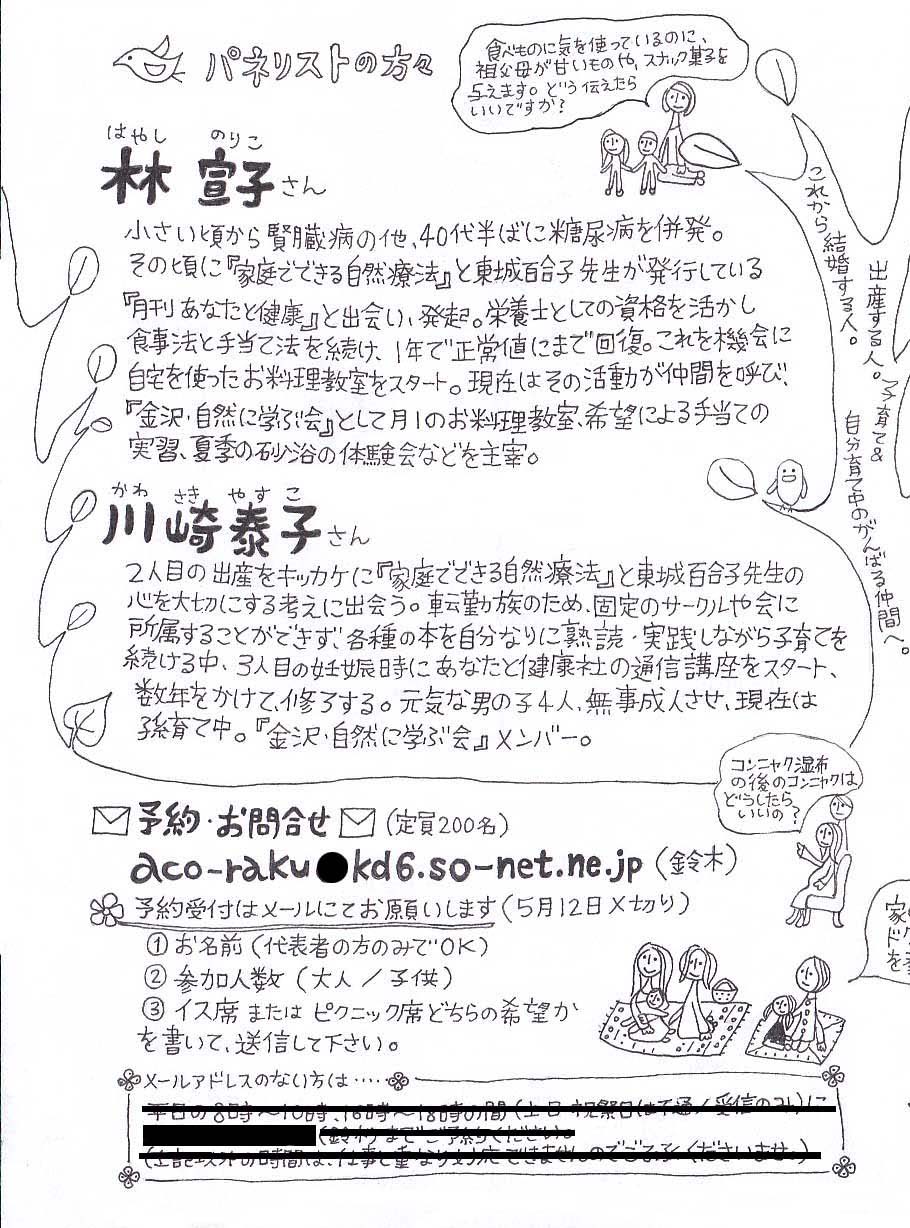 パネリストの方々
食べものに気を使っているのに、
祖父母が甘いものや、スナック菓子を
与えます。どう伝えたら
いいですか?
はやし のりこ
林 宣子さん
小さい頃から腎臓病の他、40代半ばに糖尿病を併発。
その頃に『家庭でできる自然療法』と東城百合子先生が発行している
『月刊 あなたと健康』と出会い、発起。栄養士としての資格を活かし
食事法と手当て法を続け、1年で正常値にまで回復。これを機会に
自宅を使ったお料理教室をスタート。現在はその活動が仲間を呼び、
『金沢・自然に学ぶ会』として月1のお料理教室、希望による手当ての
実習、夏季の砂浴の体験会などを主宰。
これから結婚する人。
出産する人。子育て&
自分育て中のがんばる仲間へ。
かわ さき やす こ
川崎泰子さん
2人目の出産をキッカケに『家庭でできる自然療法』と東城百合子先生の
心を大切にする考えに出会う。転勤族のため、固定のサークルや会に
所属することができず、各種の本を自分なりに熟読・実践しながら子育てを
続ける中、3人目の妊娠時にあなたと健康社の通信講座をスタート、
数年をかけて、修了する。元気な男の子4人、無事成人させ、現在は
孫育て中。『金沢・自然に学ぶ会』メンバー。
コンニャク湿布
の後のコンニャクは、
どうしたら
いいの?
予約・お問合せ (定員200名)
aco-raku●kd6.so-net.ne.jp (鈴木)
予約受付はメールにてお願いします(5月12日〆切り)
① お名前(代表者の方のみでOK)
② 参加人数(大人/子供)
③ イス席 または ピクニック席どちらの希望か
を書いて、送信して下さい。
メールアドレスのない方は‥‥